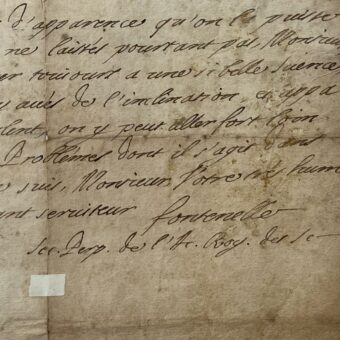 d'apparence qu'on le puisse
ne laissés pourtant pas, Monsieur
er toujours a une si belle science
avés de l'inclination, et appa
lent, on y peut aller fort loin
Problemes dont il s'agit sans
suis, Monsieur, Votre tres hum
ant serviteur fontenelle
Sec. Perp. de l'Ac. Roy. des Sc